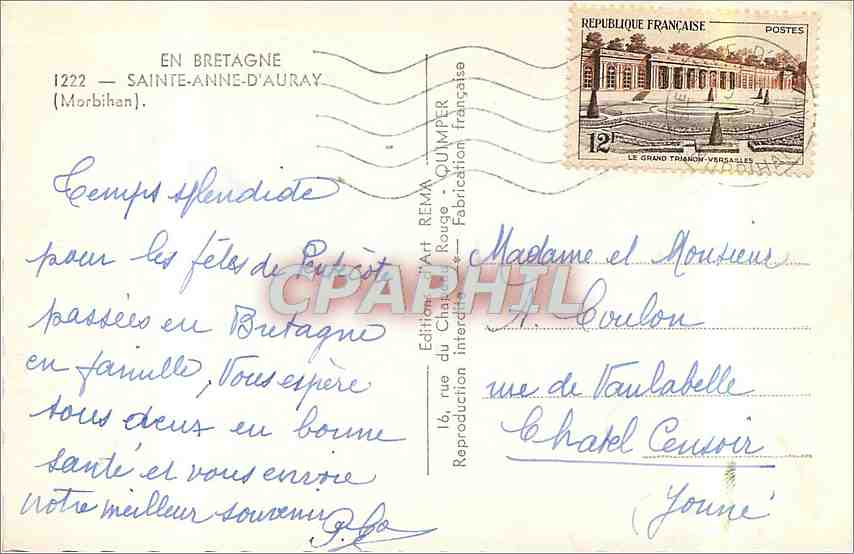 EN BRETAGNE
1222 — SAINTE-ANNE-D'AURAY
(Morbihan).
REPUBLIQUE FRANÇAISE
POSTES
12F
LE GRAND TRIANON-VERSAILLES
Temps splendide
pour les fêtes de Pentecôte
passées en Bretagne
en famille, Vous espère
tous deux en bonne
santé et vous envoie
notre meilleur souvenir
Editions d'Art REMA
16, rue du Chapeau Rouge - QUIMPER
Reproduction interdite — Fabrication française
CPAPHIL
Madame et Monsieur
A. Coulon
rue de Vaulabelle
Chatel Censoir
(Yonne)